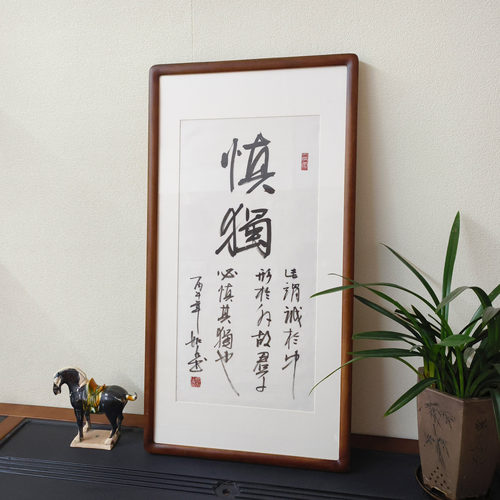 慎獨
此謂誠於中
形於外故君子
必慎其獨也
丙午年